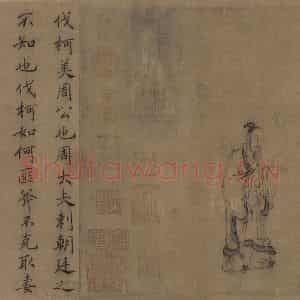 伐柯美周公也周大夫刺朝廷之
不知也伐柯如何匪斧不克取妻
Shufawang.CN